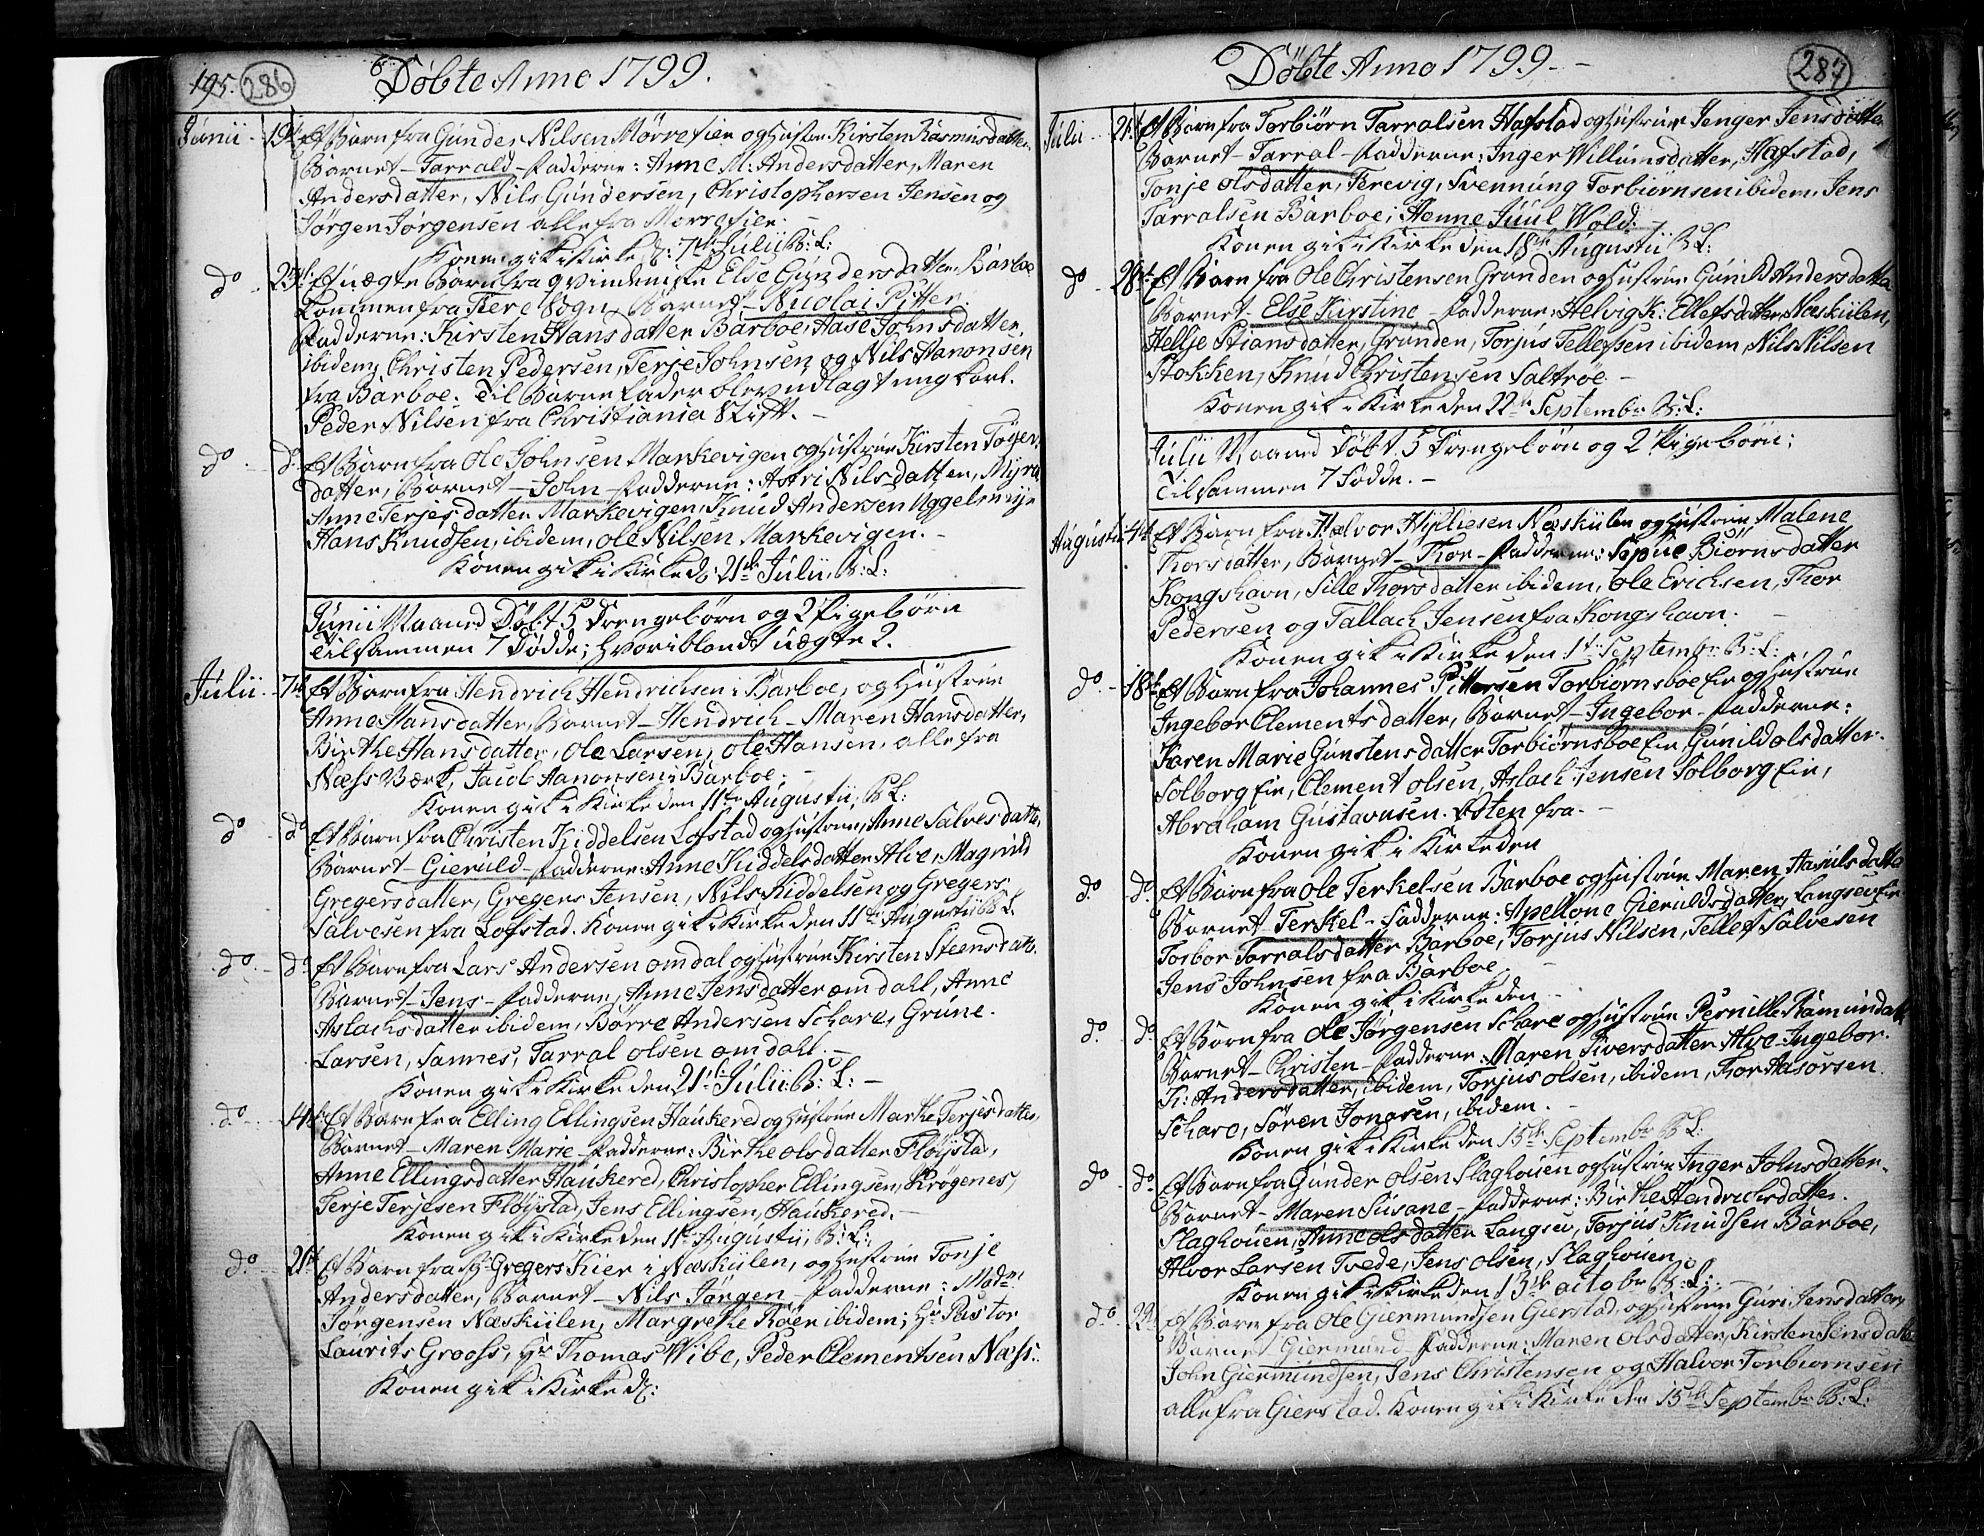 195. 286 Döbte Anno 1799.
Junii 19de Et Barn fra Gunder Nilsen Mörrefier og Hustrue Kirsten Rasmusdatter
Barnet - Tarrald - Fadderne: Anne M: Andersdatter, Maren
Andersdatter, Nils Gundersen, Christophersen Jensen og
Jörgen Jörgensen alle fra Morrefier. -
Konen gik i Kirke d: 7de Julii B: L:
do 23de Et uægte Barn fra qvindemske Else Gundersdatter Barboe
kommen fra Fiere Sogn, Barnet - Nicolai Pitter.
Fadderne: Kirsten Hansdatter Barboe, Aase Johnsdatter,
ibidem, Christen Pedersen, Terje Johnsen og Nils Hanonsen
fra Barboe. Til Barnefader blev udlagt ung karl.
Peder Nilsen fra Christiania Stift. -
do do Et Barn fra Ole Johnsen Markevigen og Hustrue Kirsten Töger
datter, Barnet - John - Fadderne: Astri Nilsdatter, Myra
Anne Terjesdatter Markevigen, Knud Andersen Uggelmyr
Hans Knudsen, ibidem, Ole Nilsen Markevigen. -
Konen gik i Kirke d: 21de Julii, B: L:
Junii Maaned Döbt 5 Drengebörn og 2 Pigebörn
Tilsammen 7 Födde; hvoriblandt uægte 2.
Julii 7de Et Barn fra Hendrich Hendrichsen i Barboe, og Hustrue
Anne Hansdatter, Barnet - Hendrich - Maren Hansdatter,
Birthe Hansdatter, Ole Larsen, Ole Hansen, alle fra
Næss Værk, Jacob Aanonsen i Barboe. -
Konen gik i Kirke den 11te Augustii, B: L:
do do Et Barn fra Christen Kiddelsen Lofstad og Hustrue, Anne Salvesdatte,
Barnet - Gieruld - Fadderne: Anne Kiddelsdatter Alve, Magnild
Gregersdatter, Gregers Jensen, Nils Kiddelsen og Gregers
Salvesen fra Lofstad. Konen gik i Kirke den 11te Augustii B: L:
do do Et Barn fra Lars Andersen Omdal og Hustrue Kirsten Steensdatt.
Barnet - Jens - Fadderne, Anne Jensdatter Omdahl, Anne
Aslachsdatter ibidem, Börre Andersen Schare, Grüne
Larsen, Sannes, Tarral Olsen Omdahl. -
Konen gik i Kirke den 21de Julii: B: L: -
do 14de Et Barn fra Elling Ellingsen Haukered og Hustrue Marthe Terjesdatter,
Barnet - Maren Marie - Fadderne: Birthe Olsdatter Flöystad,
Anne Ellingsdatter Haukered, Christopher Ellingsen, Krögenes,
Terje Terjesen Flöystad, Jens Ellingsen, Haukered. -
Konen gik i Kirke den 11te Augustii, B: L:
do 21de Et Barn fra Hr Gregers Kier i Næskiilen, og Hustrue Tonje
Andersdatter, Barnet - Nils Jörgen - Fadderne: Madme
Jörgensen Næskiilen, Margrethe Röer ibidem; Hr Pastor
Laurits Grooss, Hr Thomas Wibe, Peder Clementsen Næss.
Konen gik i Kirke d:
Döbte Anno 1799. - 287
Julii 21de Et Barn fra Torbiörn Tarralsen Hafstad og Hustrue Jenger Jensdatter
Barnet - Tarral - Fadderne: Inger Willumsdatter, Hafstad,
Tonje Olsdatter, Terevig, Svennung Torbiörnsen ibidem, Jens
Tarralsen Barboe; Hanne Juul Wold. -
Konen gik i Kirke den 18de Augustii B: L:
do 28de Et Barn fra Ole Christensen Grunden og Hustrue Gunild Andersdatter
Barnet - Else Kirstine - Fadderne: Helvig K: Ellefsdatter, Næskiilen,
Hellje Stiansdatter, Grunden, Torjus Tellefsen ibidem, Nils Nilsen
Stokken, Knud Christensen Saltröe -
Konen gik i Kirke den 22de Septembr B: L:
Julii Maaned Döbt 5 Drengebörn og 2 Pigebörn;
Tilsammen 7 Födde. -
Augustii 4de Et Barn fra Halvor Næskiilen og Hustrue Malene
Thorsdatter, Barnet - Thor - Fadderne: Biörnsdatter
Kongshavn, Sille Thorsdatter ibidem, Ole Erichsen, Thor
Pedersen og Tallach Jensen fra Kongshavn. -
Konen gik i Kirke den 1te Septembr B: L:
do 18de Et Barn fra Johannes Pittersen Torbiornsboe Eie og Hustrue
Ingebor Clementsdatter, Barnet - Ingebor - Fadderne:
Karen Marie Gunstensdatter Torbiörnsboe Eie, Gunild Olsdatter
Solborg Eie, Clement Olsen, Aslach Jensen Solborg Eie,
Abraham Gustavusen. Östen fra. -
Konen gik i Kirke den
do do Et Barn fra Ole Terkelsen Barboe og Hustrue Maren Hasulsdatter
Barnet - Terkel - Fadderne: Apellone Gieruldsdatter, Langseu Eie
Torbor Tarralsdatter Barboe, Torjus Nilsen, Tellef Salvesen
Jens Johnsen fra Barboe, -
Konen gik i Kirke den -
do do Et Barn fra Ole Jörgensen Schare og Hustrue Pernille Ramundatt
Barnet - Christen - Fadderne: Maren Siversdatter Alve - Ingebor
K: Andersdatter, ibidem, Torjus Olsen, ibidem, Thor Aasorsen
Schare, Sören Jonasen, ibidem. -
Konen gik i Kirke den 15de Septembr B: L:
do do Et Barn fra Gunder Olsen Slaghouen og Hustrue Inger Johnsdatter
Barnet - Maren Susane - Fadderne: Birthe Hendrichsdatter
Slaghouen, Anne Olsdatter Langseu, Torjus Knudsen Barboe,
Alvor Larsen Tvede, Jens Olsen, Slaghouen,
Konen gik i Kirke den 13de Octobr B: L: -
do 29 Et Barn fra Ole Giermundsen Gierstad og Hustrue Guri Jensdatter
Barnet Giermund Fadderne: Maren Olsdatter, Kirsten Jensdatter
John Giermundsen, Jens Christensen og Halvor Torbiornsen
alle fra Gierstad. Konen gik i Kirke den 15de Septembr B: L: